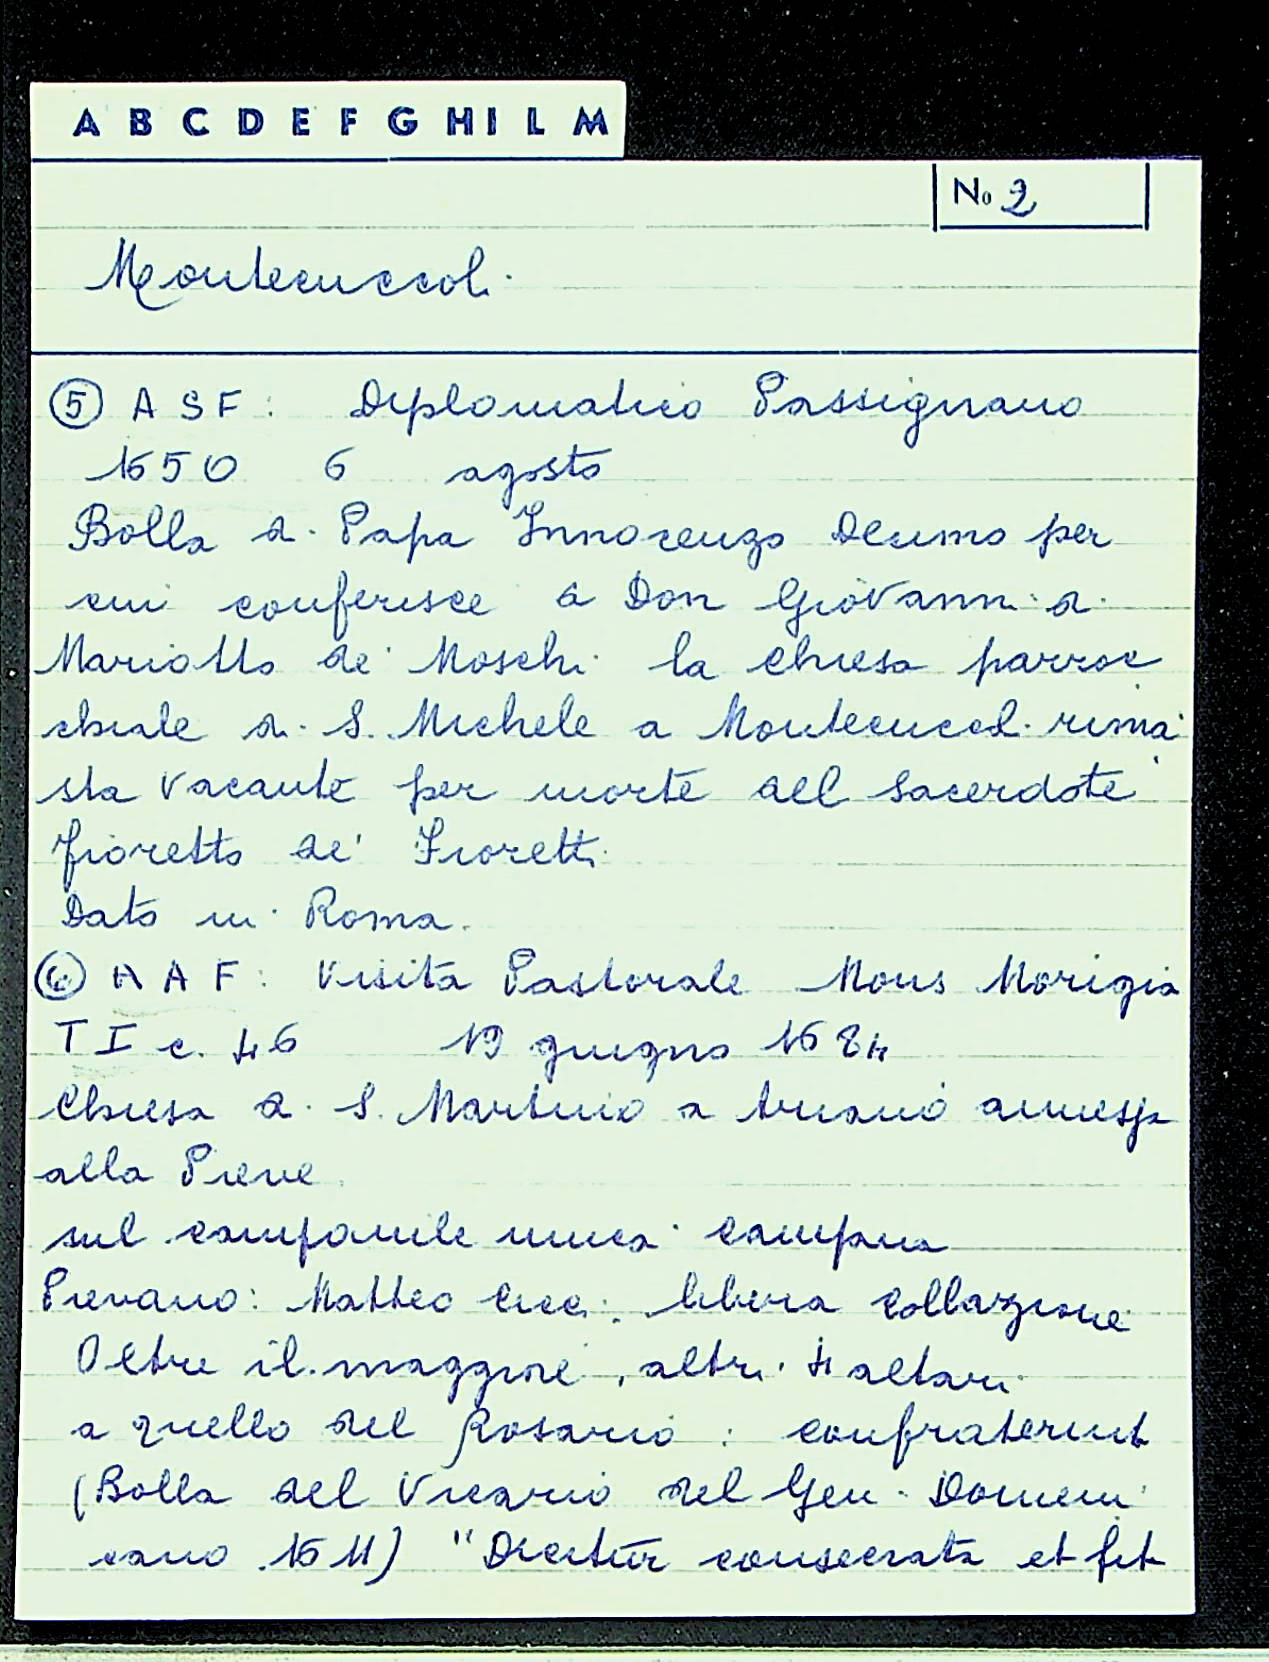 A B C D E F G H I L M
No 2
Montecuccoli
5 A S F: Diplomatico Passignano
1650 6 agosto
Bolla di Papa Innocenzo Decimo per
cui conferisce a Don Giovanni di
Mariotto de' Moschi la chiesa parroc
chiale di S. Michele a Montecuccoli rima
sta vacante per morte del Sacerdote
Fioretto de' Fioretti
Dato in Roma.
6 A A F: Visita Pastorale Mons Morigia
T I c. 46 19 giugno 1684
Chiesa di S. Martino a annessa
alla Pieve
sul campanile unica campana
Pievano: Matteo Ceci. libera collazione
Oltre il maggiore, altri 4 altari
a quello del Rosario: confraternit
(Bolla del Vicario del Gen. Domeni
cano 1611) "Dicitur consecrata et fit